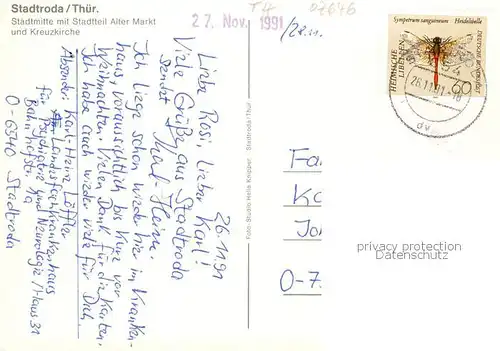 Stadtroda / Thür.
Stadtmitte mit Stadtteil Alter Markt
und Kreuzkirche
27. Nov. 1991
T4
07646
Sympetrum sanguineum Heidelibelle
HEIMISCHE LIBELLEN
DEUTSCHE BUNDESPOST
60
26.11.91-18
dv
26.11.91
Liebe Rosi, Lieber Karl!
Viele Grüße aus Stadtroda
sendet Karl-Heinz.
Ich liege schon wieder hier im Kranken-
haus, voraussichtlich bis kurz vor
Weihnachten. Vielen Dank für die Karten.
Ich habe auch wieder viele für Dich.
Absender: Karl-Heinz Löffler
Landesfachkrankenhaus
für Psychiatrie und Neurologie / Haus 31
Bahnhofstr.
O-6540 Stadtroda
Foto-Studio Hella Knipper Stadtroda/Thür
Fa
Ka
O-7
privacy protection
Datenschutz